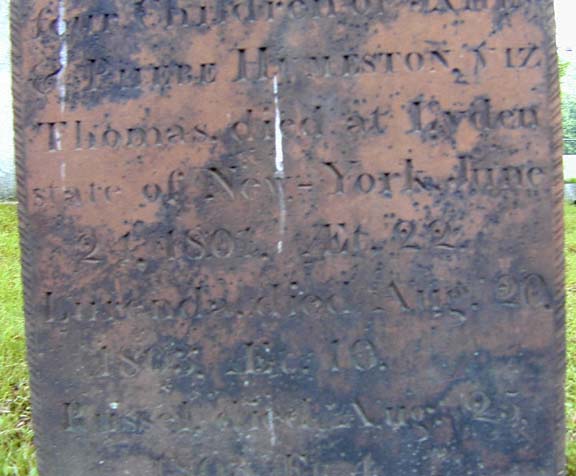 four Children of
& PHEBE HUMESTON, VIZ
Thomas, died at Lyden
state of New-York June
24, 1801. Æt. 22
Lurenda, died Aug. 20,
1803. Æt. 10.
Russel, died Aug. 25